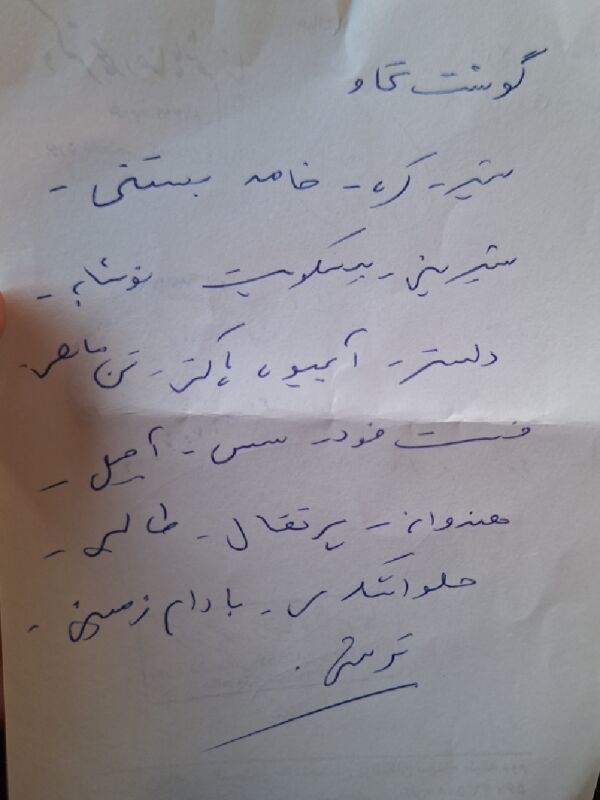 گوشت گاو
شیر - کره - خامه بستنی -
شیرینی - بیسکویت نوشابه -
دلستر - آبمیوه پاکتی - تن ماهی -
فست فود - سس - آجیل -
هندوانه - پرتقال - طالبی -
حلوا شکری - بادام زمینی -
ترشی .